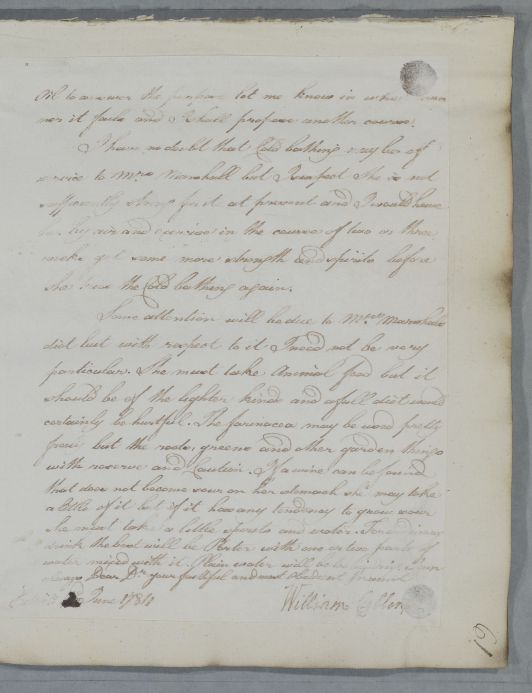 Oil to answer the purpose let me know in what man
ner it fails and I shall propose another course.
I have no doubt that Cold bathing may be of
service to Mrs Marshall but I suspect she is not
sufficiently strong for it at present and I would have
her by air and exercise in the course of two or three
weeks get some more strength and spirits before
she tries the Cold bathing again.
Some attention will be due to Mrs Marshalls
diet but with respect to it I need not be very
particular. She must take Animal food but it
should be of the lighter kinds and a full diet would
certainly be hurtful. The farinacea may be used pretty
freely but the roots, greens and other garden things
with reserve and Caution. If a wine can be found
that does not become sour on her stomach she may take
a little of it but if it has any tendency to grow sour
she must take a little spirits and water. For
drink the best will be Porter with one or two parts of
water mixed with it. Plain water will
always Dear Dr your faithful and most obedient Servant
June 1784 William Cullen
19